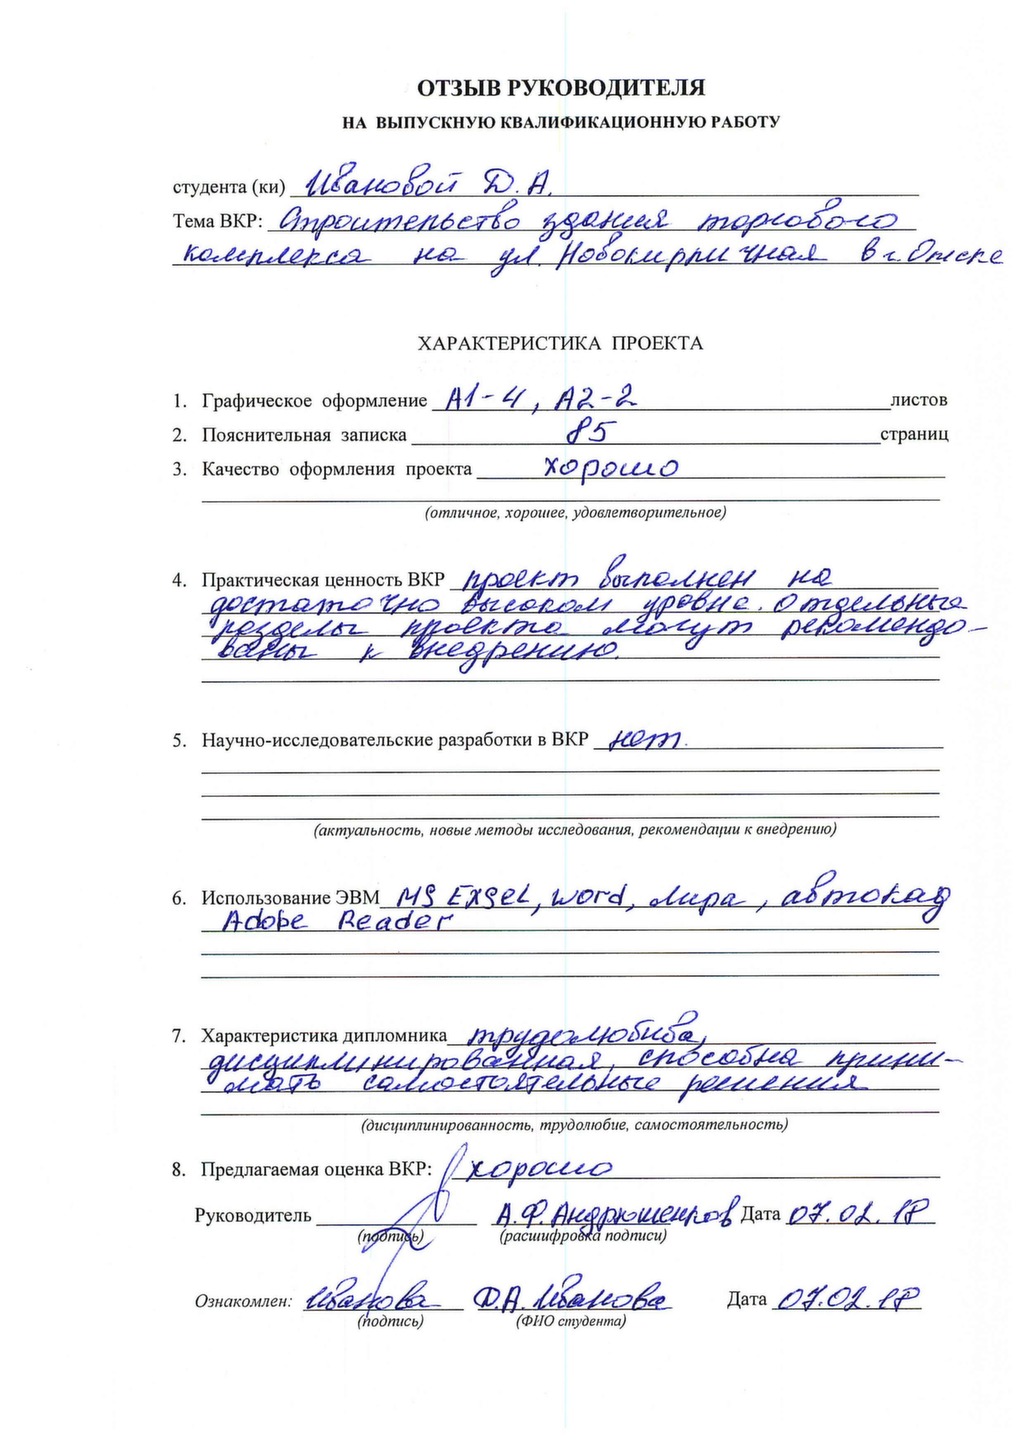 ОТЗЫВ РУКОВОДИТЕЛЯ
НА ВЫПУСКНУЮ КВАЛИФИКАЦИОННУЮ РАБОТУ
студента (ки) Ивановой Д.А.
Тема ВКР: Строительство здания торгового
комплекса на ул. Новокирпичная в г. Омске
ХАРАКТЕРИСТИКА ПРОЕКТА
1. Графическое оформление А1-4, А2-2 листов
2. Пояснительная записка 85 страниц
3. Качество оформления проекта хорошо
(отличное, хорошее, удовлетворительное)
4. Практическая ценность ВКР проект выполнен на
достаточно высоком уровне. Отдельные
разделы проекта могут рекомендо-
ваны к внедрению.
5. Научно-исследовательские разработки в ВКР нет.
(актуальность, новые методы исследования, рекомендации к внедрению)
6. Использование ЭВМ MS EXSEL, Word, Лира, автокад
Adobe Reader
7. Характеристика дипломника трудолюбива,
дисциплинированная, способна прини-
мать самостоятельные решения
(дисциплинированность, трудолюбие, самостоятельность)
8. Предлагаемая оценка ВКР: хорошо
Руководитель А.Ф. Андрюшенков Дата 07.02.18
(подпись) (расшифровка подписи)
Ознакомлен: Иванова Д.А. Иванова Дата 07.02.18
(подпись) (ФИО студента)